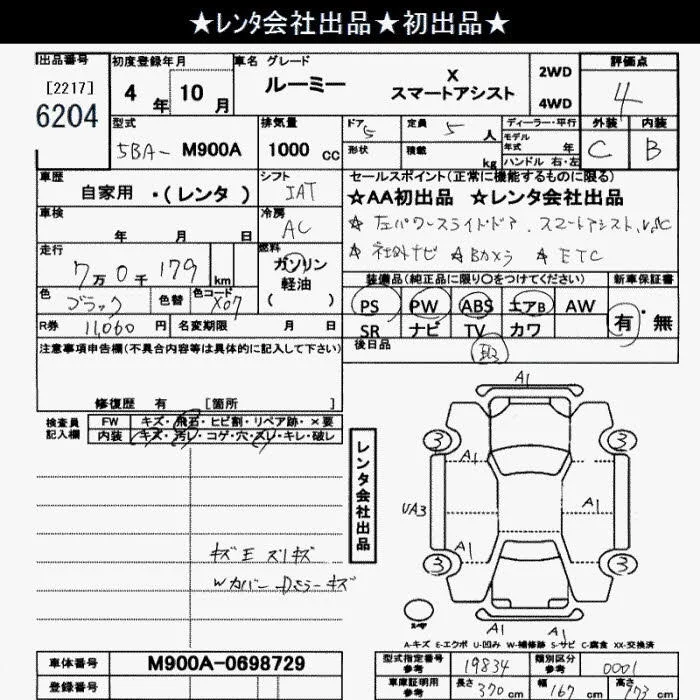 ★レンタ会社出品★初出品★
出品番号 初度登録年月 車名 グレード 評価点
[2217] 6204 4年 10月 ルーミー X スマートアシスト 2WD 4WD 4
型式 排気量 ドア 定員 ディーラー・平行 外装 内装
5BA- M900A 1000 cc 5 5人 モデル年式 年 C B
形状 積載 kg ハンドル 右・左
車歴 シフト セールスポイント(正常に機能するものに限る)
自家用 ・(レンタ) IAT ★AA初出品 ★レンタ会社出品
車検 冷房 ☆ 左パワースライドドア. スマートアシスト, VSC
年 月 日 AC ☆ 社外ナビ ☆ Bカメラ ☆ ETC
走行 燃料
7万0千179 km ガソリン 軽油 ( )
装備品(純正品に限り○をつけてください) 新車保証書
色 色替 色コード PS PW ABS エアB AW 有・無
ブラック X07 SR ナビ TV カワ
R券 11,060円 名変期限 月 日 後日品
注意事項申告欄(不具合内容等は具体的に記入して下さい)
修復歴 有 [箇所 ]
検査員記入欄 FW キズ・飛石・ヒビ割・リペア跡・×要
内装 キズ・汚レ・コゲ・穴・スレ・キレ・破レ
レンタ会社出品
A1
3 3
A1
UA3 A1
A1
3 3
A1 A1
キズ E ズリキズ
Wカバー Dミラーキズ
A-キズ E-エクボ U-凹み W-補修跡 S-サビ C-腐食 XX-交換済
車体番号 M900A-0698729 型式指定番号 参考 19834 類別区分 参考 0001
登録番号 車庫証明用 参考 長さ 370 cm 幅 167 cm 高さ 173 cm